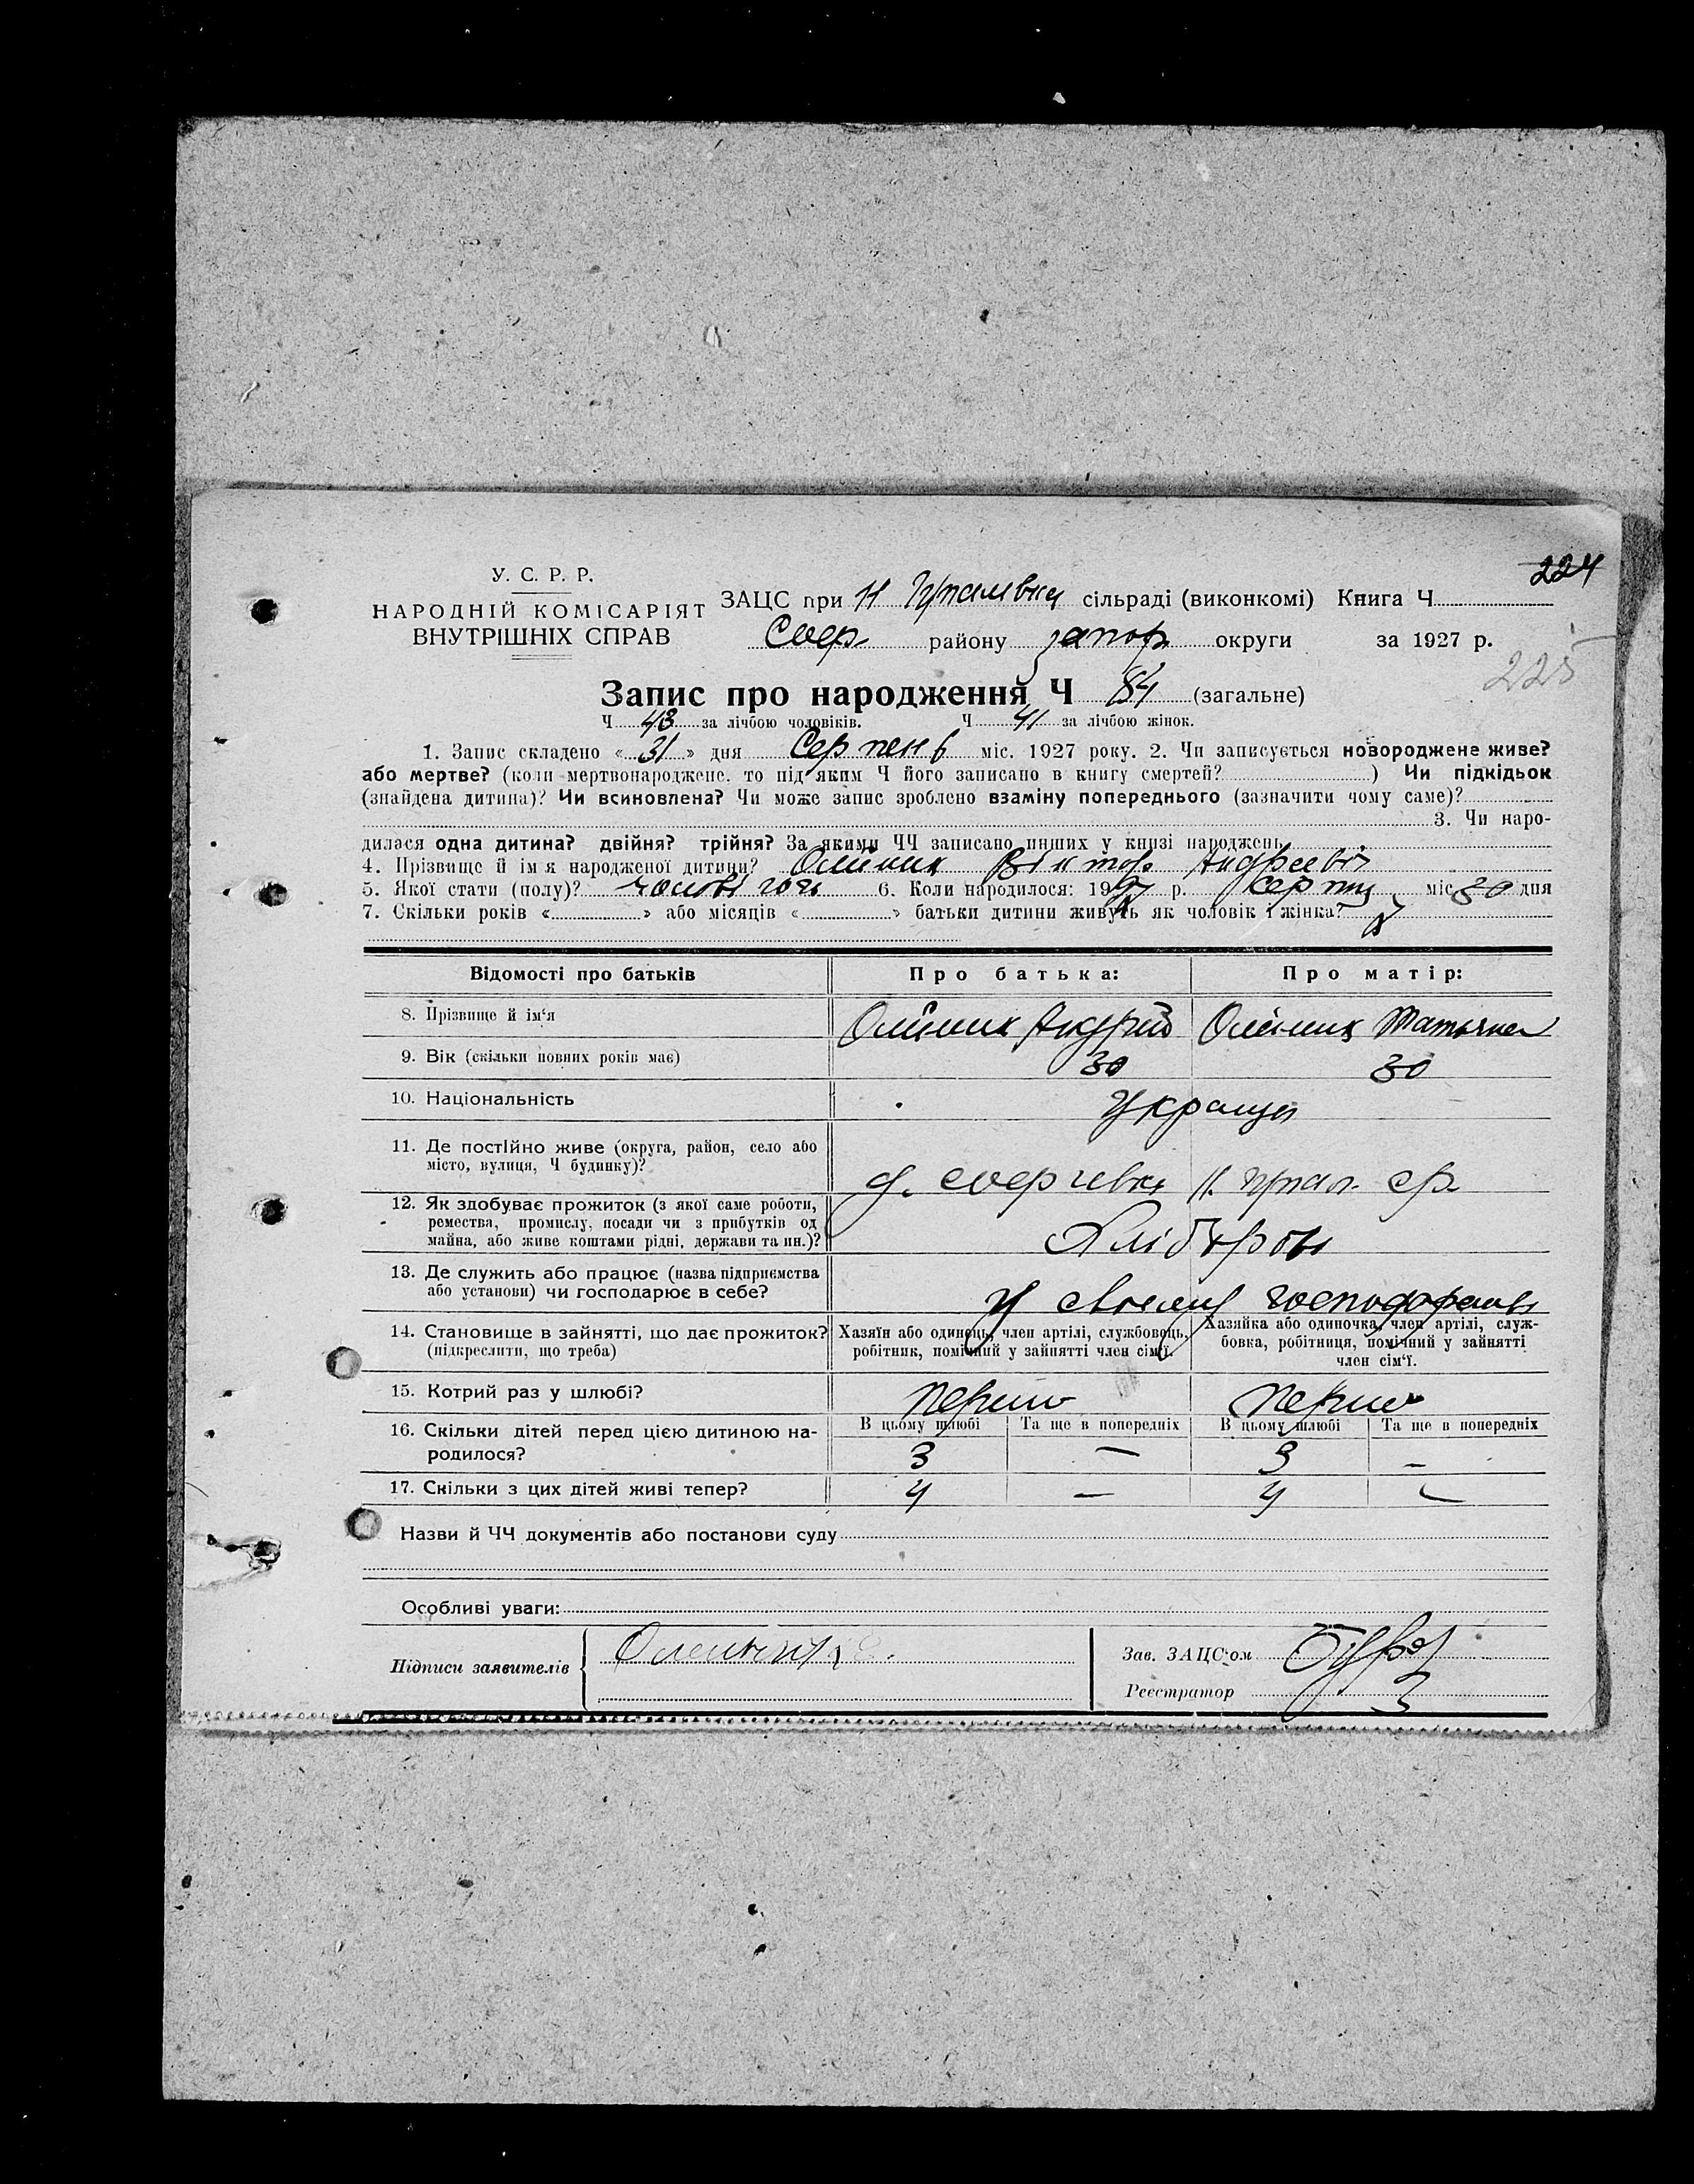 224
У. С. Р. Р.
НАРОДНІЙ КОМІСАРІЯТ
ВНУТРІШНІХ СПРАВ
ЗАЦС при Н сільраді (виконкомі) Книга Ч
району запор округи за 1927 р.
225
Запис про народження Ч 84 (загальне)
Ч 43 за лічбою чоловіків. Ч 41 за лічбою жінок.
1. Запис складено « 31 » дня Серпень міс. 1927 року. 2. Чи записується новороджене живе?
або мертве? (коли мертвонароджене. то під яким Ч його записано в книгу смертей? ) Чи підкідьок
(знайдена дитина)? Чи всиновлена? Чи може запис зроблено взаміну попереднього (зазначити чому саме)?
3. Чи наро-
дилася одна дитина? двійня? трійня? За якими ЧЧ записано инших у книзі народжень
4. Прізвище й ім'я народженої дитини? Олійник Віктор Андреевіч
5. Якої стати (полу)? 6. Коли народилося: 1927 р. серпня міс 30 дня
7. Скільки років « » або місяців « » батьки дитини живуть як чоловік і жінка?
Відомості про батьків Про батька: Про матір:
8. Прізвище й ім'я Олійник Андрій Олейник Татьяна
9. Вік (скільки повних років має) 30 30
10. Національність Украінци
11. Де постійно живе (округа, район, село або
місто, вулиця, Ч будинку)?
12. Як здобуває прожиток (з якої саме роботи,
ремества, промислу, посади чи з прибутків од
майна, або живе коштами рідні, держави та ин.)? Хлібороби
13. Де служить або працює (назва підприємства
або установи) чи господарює в себе? У своему господарстві
14. Становище в зайнятті, що дає прожиток?
(підкреслити, що треба)
Хазяїн або одинець, член артілі, службовець,
робітник, помічний у зайнятті член сім'ї.
Хазяйка або одиночка, член артілі, служ-
бовка, робітниця, помічний у зайнятті
член сім'ї.
15. Котрий раз у шлюбі?
16. Скільки дітей перед цією дитиною на-
родилося?
В цьому шлюбі Та ще в попередніх В цьому шлюбі Та ще в попередніх
3 — 3 —
17. Скільки з цих дітей живі тепер? 4 — 4 —
Назви й ЧЧ документів або постанови суду
Особливі уваги:
Підписи заявителів
Зав. ЗАЦС'ом
Реєстратор